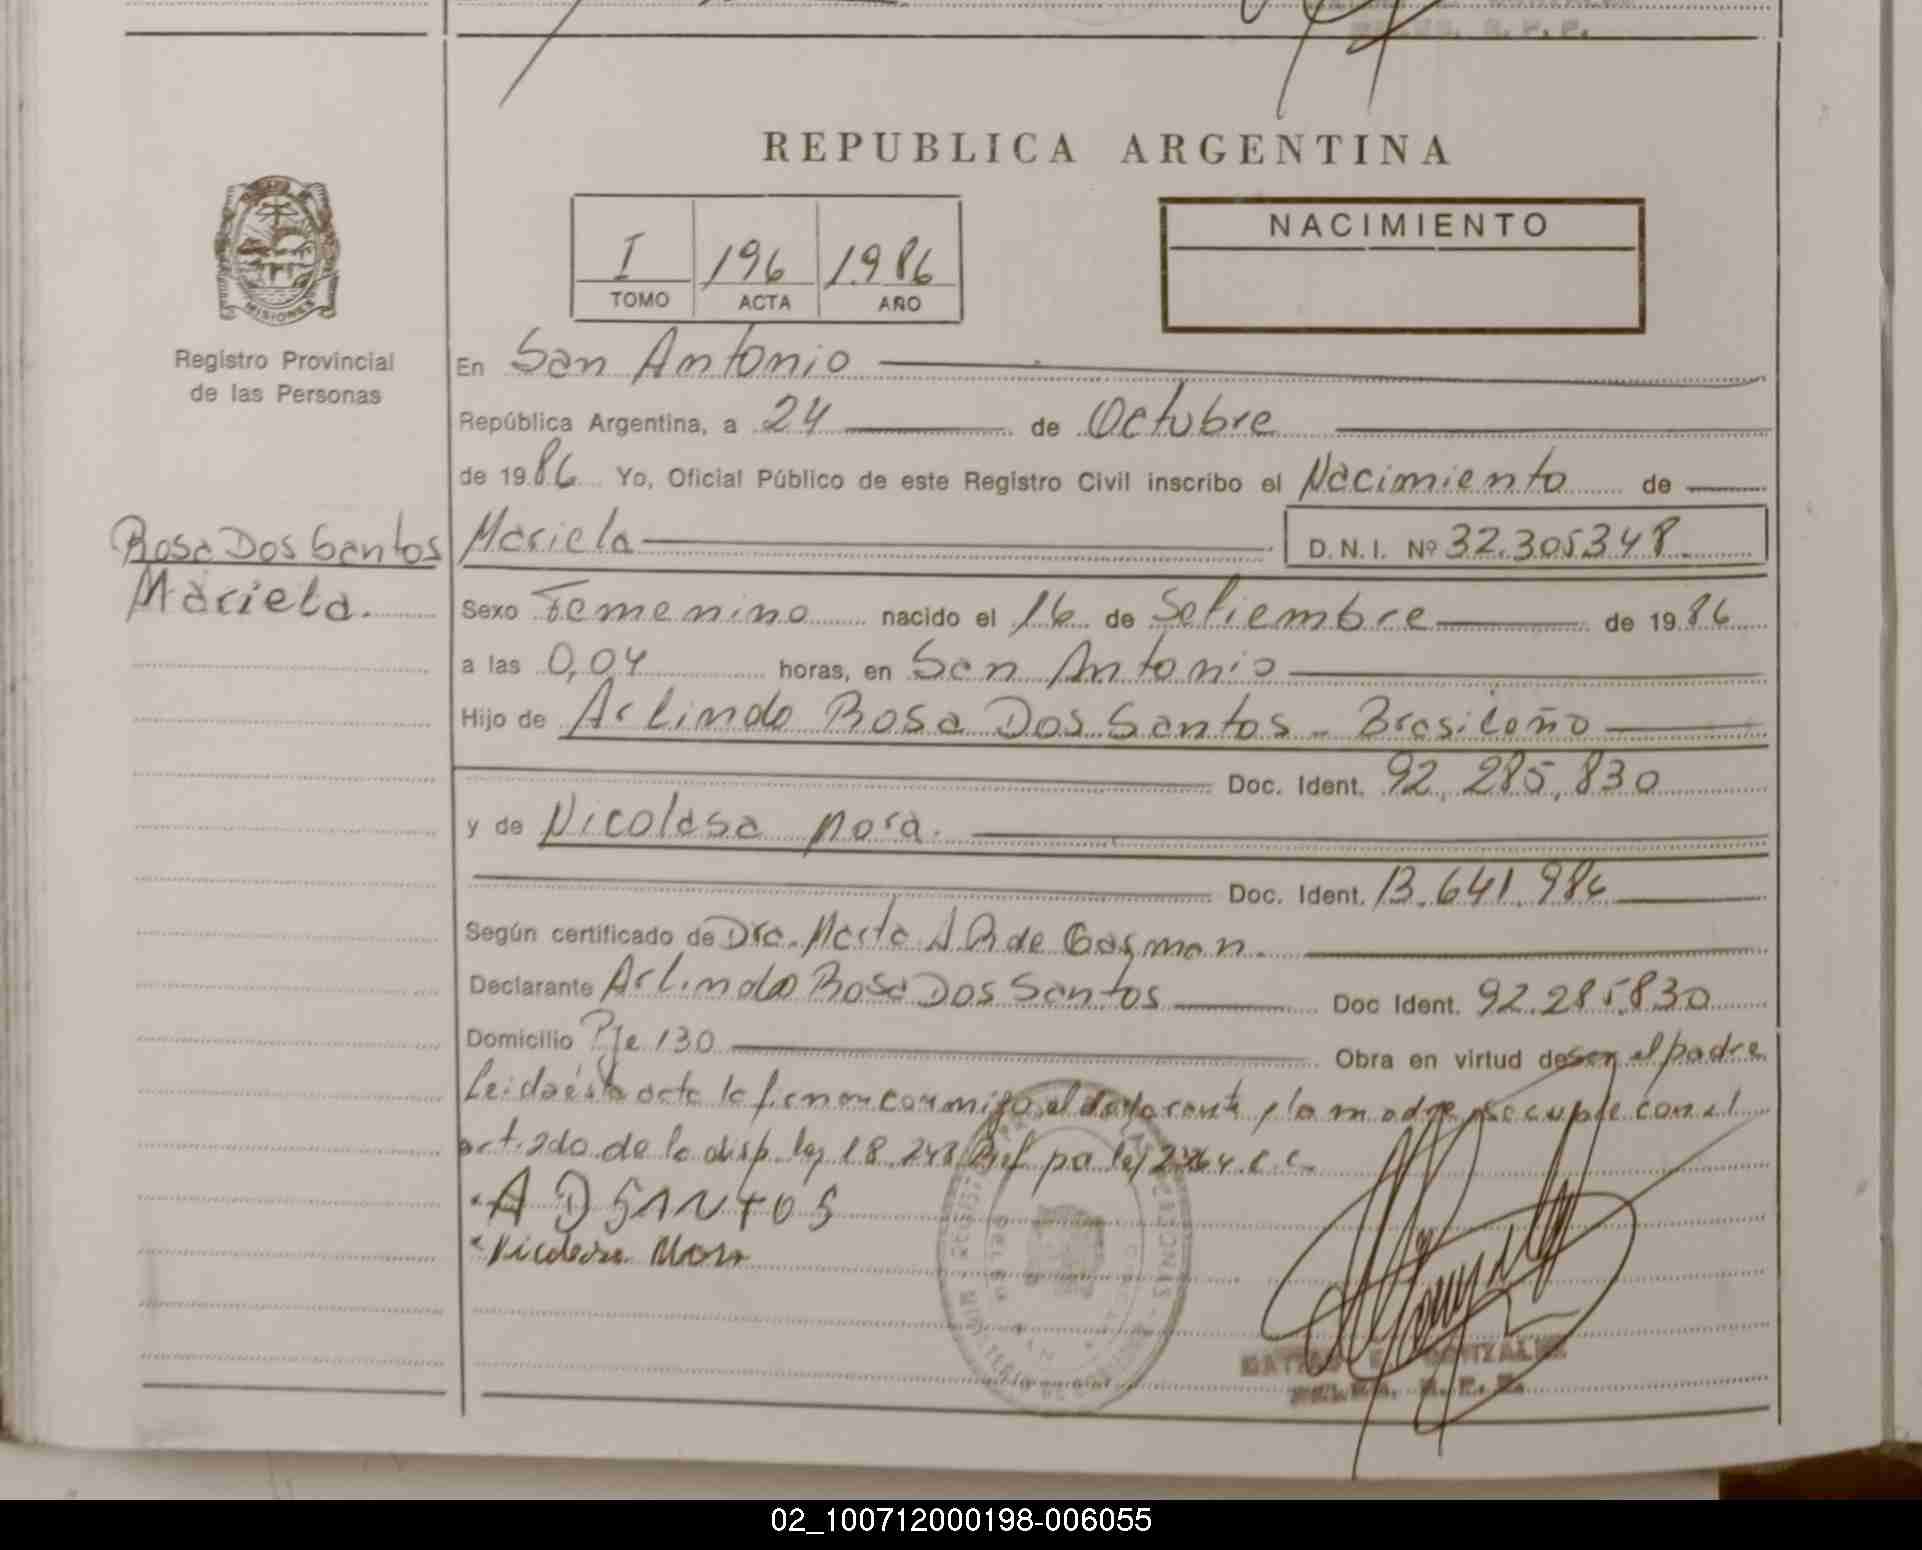 REPUBLICA ARGENTINA
I 196 1986
TOMO ACTA AÑO
NACIMIENTO
MISIONES
Registro Provincial
de las Personas
En San Antonio
República Argentina, a 24 de Octubre
de 1986 Yo, Oficial Público de este Registro Civil inscribo el Nacimiento de
Rosa Dos Santos
Mariela.
Mariela D.N.I. Nº 32.305.348
Sexo Femenino nacido el 16 de Setiembre de 1986
a las 0,04 horas, en San Antonio
Hijo de Arlindo Rosa Dos Santos - Brasileño
Doc. Ident. 92.285.830
y de Nicolasa Mora.
Doc. Ident. 13.641.986
Según certificado de Dra. Marta A R de Gasman.
Declarante Arlindo Rosa Dos Santos Doc Ident. 92.285.830
Domicilio Pje 130 Obra en virtud de ser el padre
Leida ésta acta la firman conmigo el declarante y la madre, se cumple con el
art. 2do de la disp. ley 18.248 Ref por ley 23264.c.c.
A D SANTOS
Nicolasa Mora
GONZALEZ
02_100712000198-006055